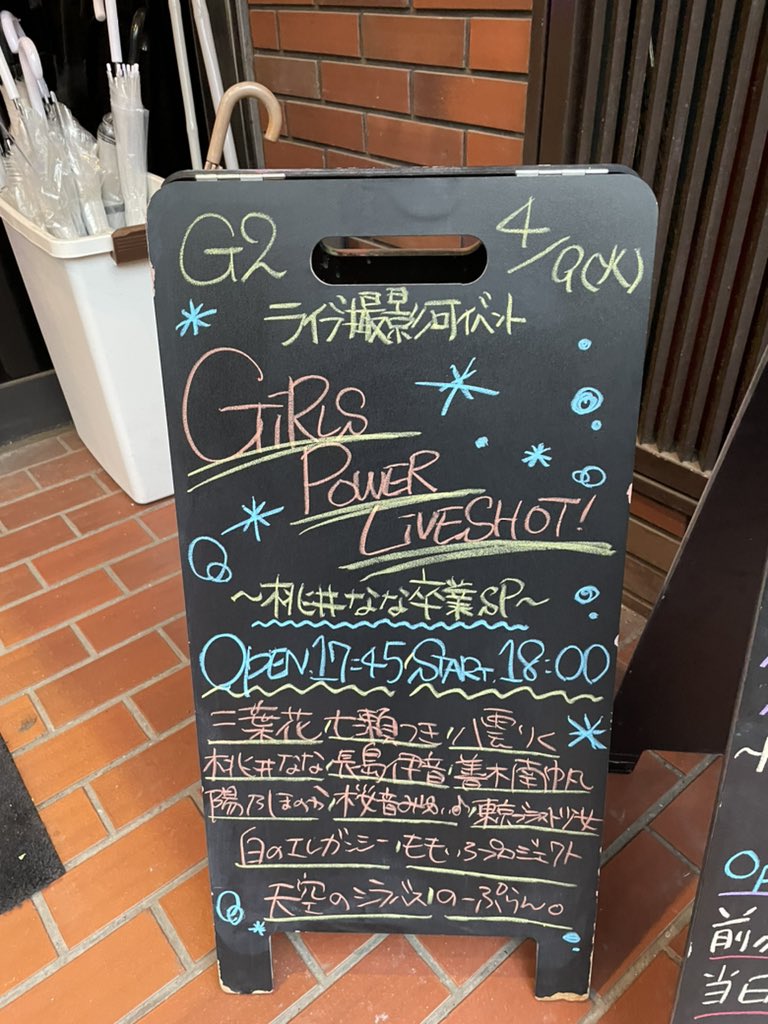 G2
4/9(火)
ライブ撮影可イベント
GiRLS
POWER
LiVESHOT!
～桃井なな卒業SP～
OPEN.17:45/START.18:00
二葉花/七瀬つき/八雲りく
桃井なな/長島伊音/善木南帆
陽乃しほのか/桜音みゆい/東京ラスト少女
白のエレガンシー/ももいろプロジェクト
天空のシラバス/のーぷらん。
OP
前
当日